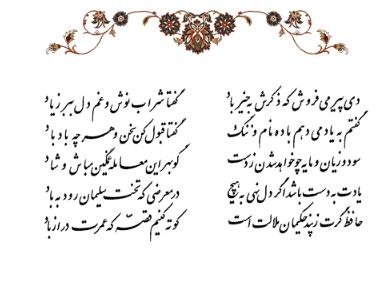 دی پیر می فروش که ذکرش به خیر باد گفتا شراب نوش و غم دل ببر زیاد
گفتم به یاد می دهم باده نام و ننگ گفتا قبول کن سخن و هر چه باد باد
سود و زیان و مایه چو خواهد شدن ز دست گو بهر این معامله غمگین مباش و شاد
یادت به دست باشد اگر دل نهی به هیچ در معرضی که تخت سلیمان رود به باد
حافظ گرت ز پند حکیمان ملالت است کوته کنیم قصه که عمرت دراز باد